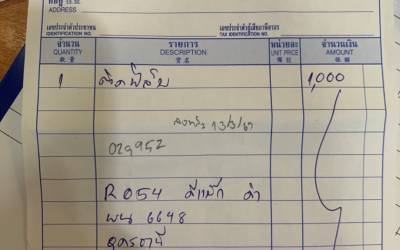 ที่อยู่
ADDRESS
เลขประจำตัวประชาชน
IDENTIFICATION NO.
เลขประจำตัวผู้เสียภาษีอากร
TAX IDENTIFICATION NO.
จำนวน รายการ หน่วยละ จำนวนเงิน
QUANTITY DESCRIPTION UNIT PRICE AMOUNT
1 ติดฟิล์ม 1,000
029952
R054 ดีแม็ก ดำ
ผน 6648
อุดรธานี